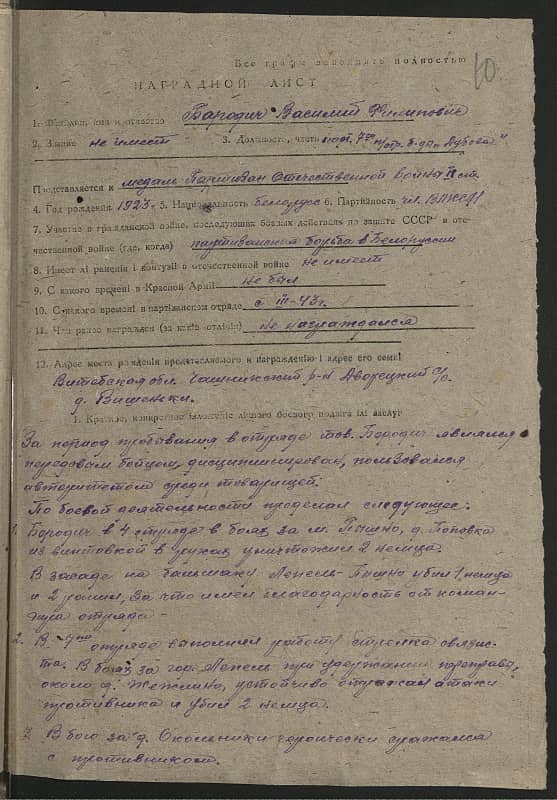 Все графы заполнять полностью
10.
НАГРАДНОЙ ЛИСТ
1. Фамилия, имя и отчество Бародич Василий Филиповič
2. Звание не имеет 3. Должность, часть парт. 7го п/отр. б-да „Дубова"
Представляется к медаль Партизан Отечественной войны II ст.
4. Год рождения 1923. 5. Национальность белорусс 6. Партийность чл. ВЛКСМ
7. Участие в гражданской войне, последующих боевых действиях по защите СССР и оте-
чественной войне (где, когда) партизанская борьба в Белоруссии
8. Имеет лі ранения і контузії в отечественной войне не имеет
9. С какого времені в Красной Армії не был
10. С какого времені в партізанском отряде с III-43г.
11. Чем ранее награжден (за какіе отлічія) не награждался
12. Адрес места рождения представляемого к награждению і адрес его семьі
Витебская обл. Чашникский р-н Дворецкий с/с.
д. Вишеньки.
1. Краткое, конкретное ізложеніе лічного боевого подвіга ілі заслуг
За период пребывания в отряде тов. Бородич являлся
передовым бойцом, дисциплинирован, пользовался
авторитетом среди товарищей.
По боевой деятельности проделал следующее:
1. Бородич в 4 отряде в боях за м. Пышно, д. Поповка
из винтовкой в руках уничтожил 2 немца.
В засаде на бальшаки Лепель-Пышно убил 1 немца
и 2 ранил, За что имел благодарность от коман-
отряда -
2. В 7ом отряде выполнял работу стрелка связис-
та. В боях за гор. Лепель при удержании переправы,
около д. Жежлино, устойчиво отражал атаки
противника и убил 2 немца.
В бою за д. Окольники героически сражался
с противником.